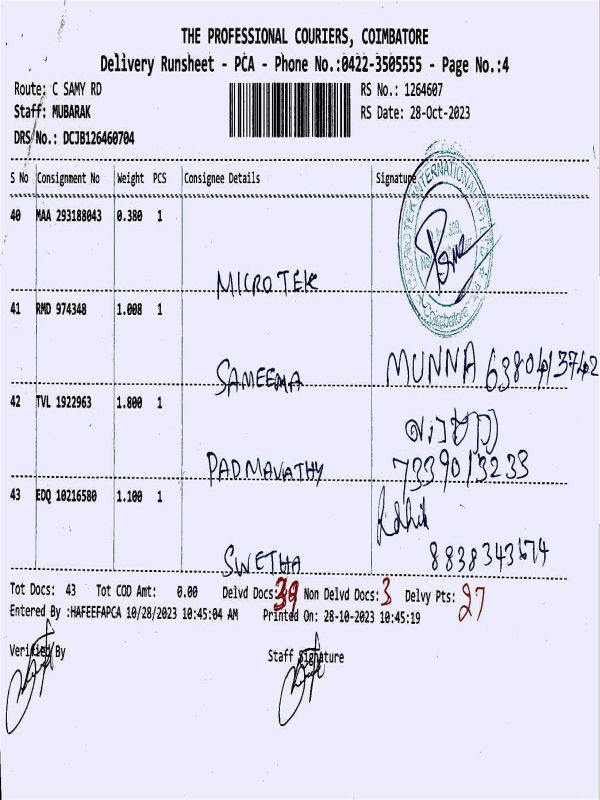 THE PROFESSIONAL COURIERS, COIMBATORE
Delivery Runsheet - PCA - Phone No.:0422-3505555 - Page No.:4
Route: C SAMY RD
RS No.: 1264607
Staff: MUBARAK
RS Date: 28-Oct-2023
DRS No.: DCJB126460704
S No Consignment No Weight PCS Consignee Details Signature
40 MAA 293188043 0.380 1
MICROTEK
41 RMD 974348 1.008 1
SAMEEMA MUNNA
42 TVL 1922963 1.800 1
PADMAVATHY 7339013233
43 EDQ 10216580 1.100 1
SWETHA 8838343674
Tot Docs: 43 Tot COD Amt: 0.00 Delvd Docs: 39 Non Delvd Docs: 3 Delvy Pts: 27
Entered By :HAFEEFAPCA 10/28/2023 10:45:04 AM Printed On: 28-10-2023 10:45:19
Verified By Staff Signature